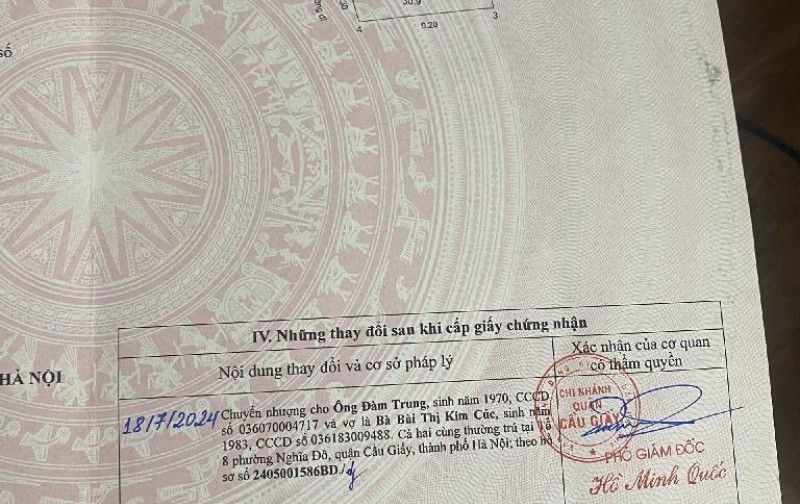 30,9
4
9.20
3
số
HÀ NỘI
IV. Những thay đổi sau khi cấp giấy chứng nhận
Nội dung thay đổi và cơ sở pháp lý
Xác nhận của cơ quan
có thẩm quyền
18/7/2024
Chuyển nhượng cho Ông Đàm Trung, sinh năm 1970, CCCD
số 036070004717 và vợ là Bà Bùi Thị Kim Cúc, sinh năm
1983, CCCD số 036183009488. Cả hai cùng thường trú tại tổ
8 phường Nghĩa Đô, quận Cầu Giấy, thành phố Hà Nội; theo hồ
sơ số 2405001586BD/
CHI NHÁNH
QUẬN
CẦU GIẤY
PHÓ GIÁM ĐỐC
Hồ Minh Quốc